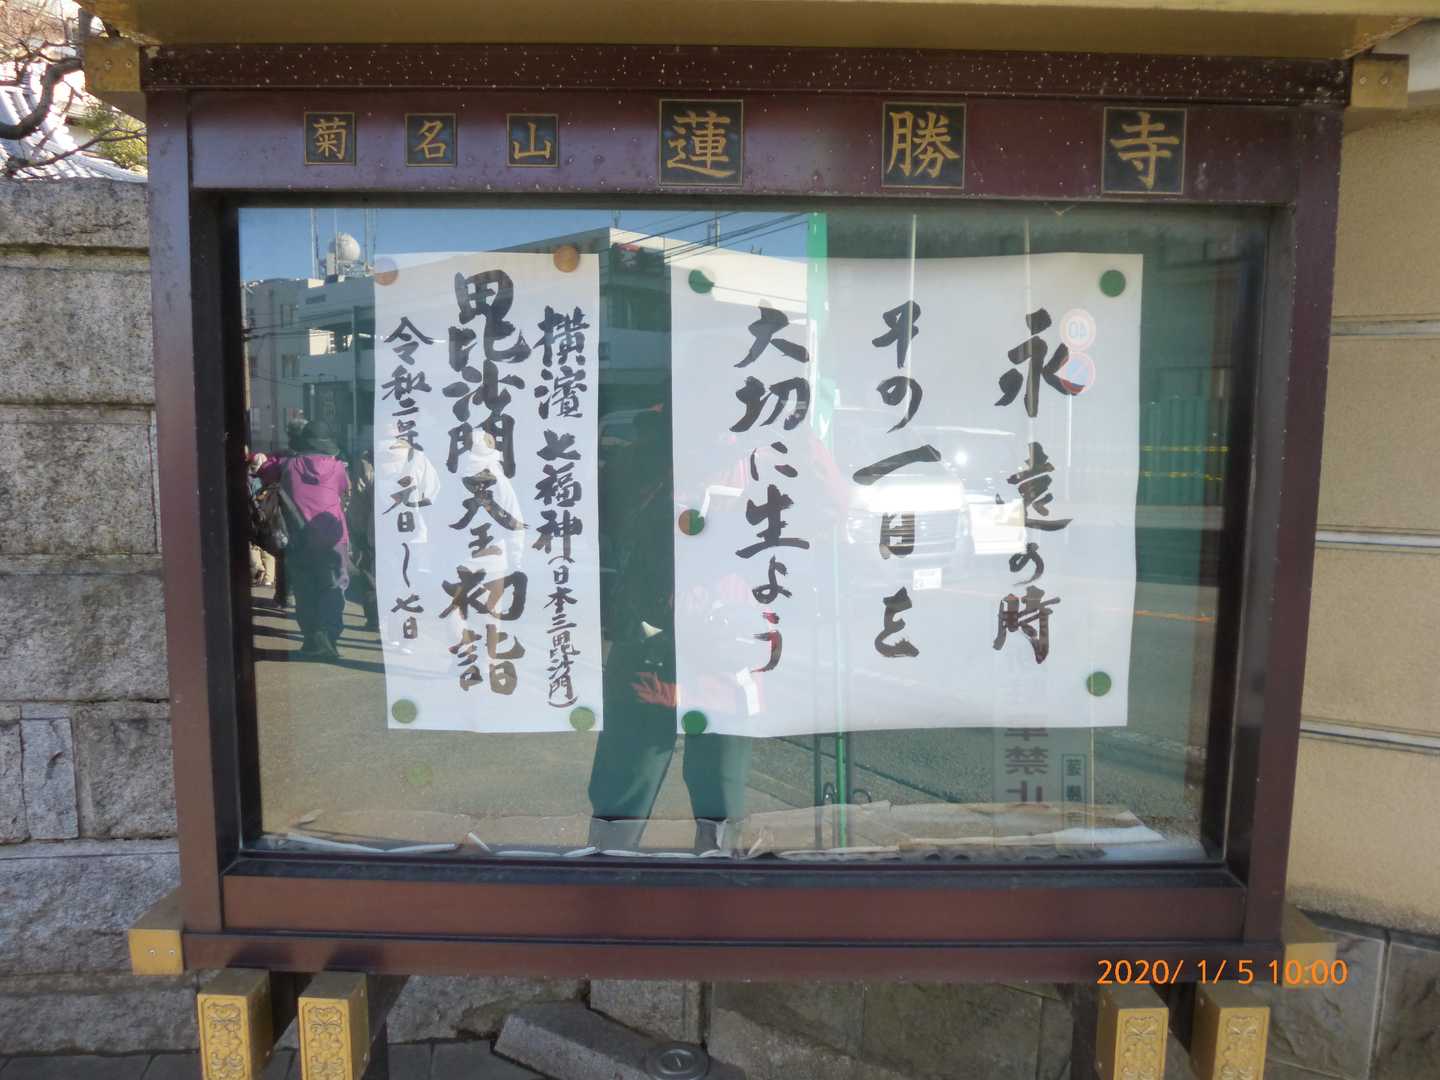 菊名山 蓮勝寺
永遠の時
その一日を
大切に生きよう
横濱七福神(日本三毘沙門)
毘沙門天王初詣
令和二年 元日〜七日
車禁止
2020/ 1/ 5 10:00